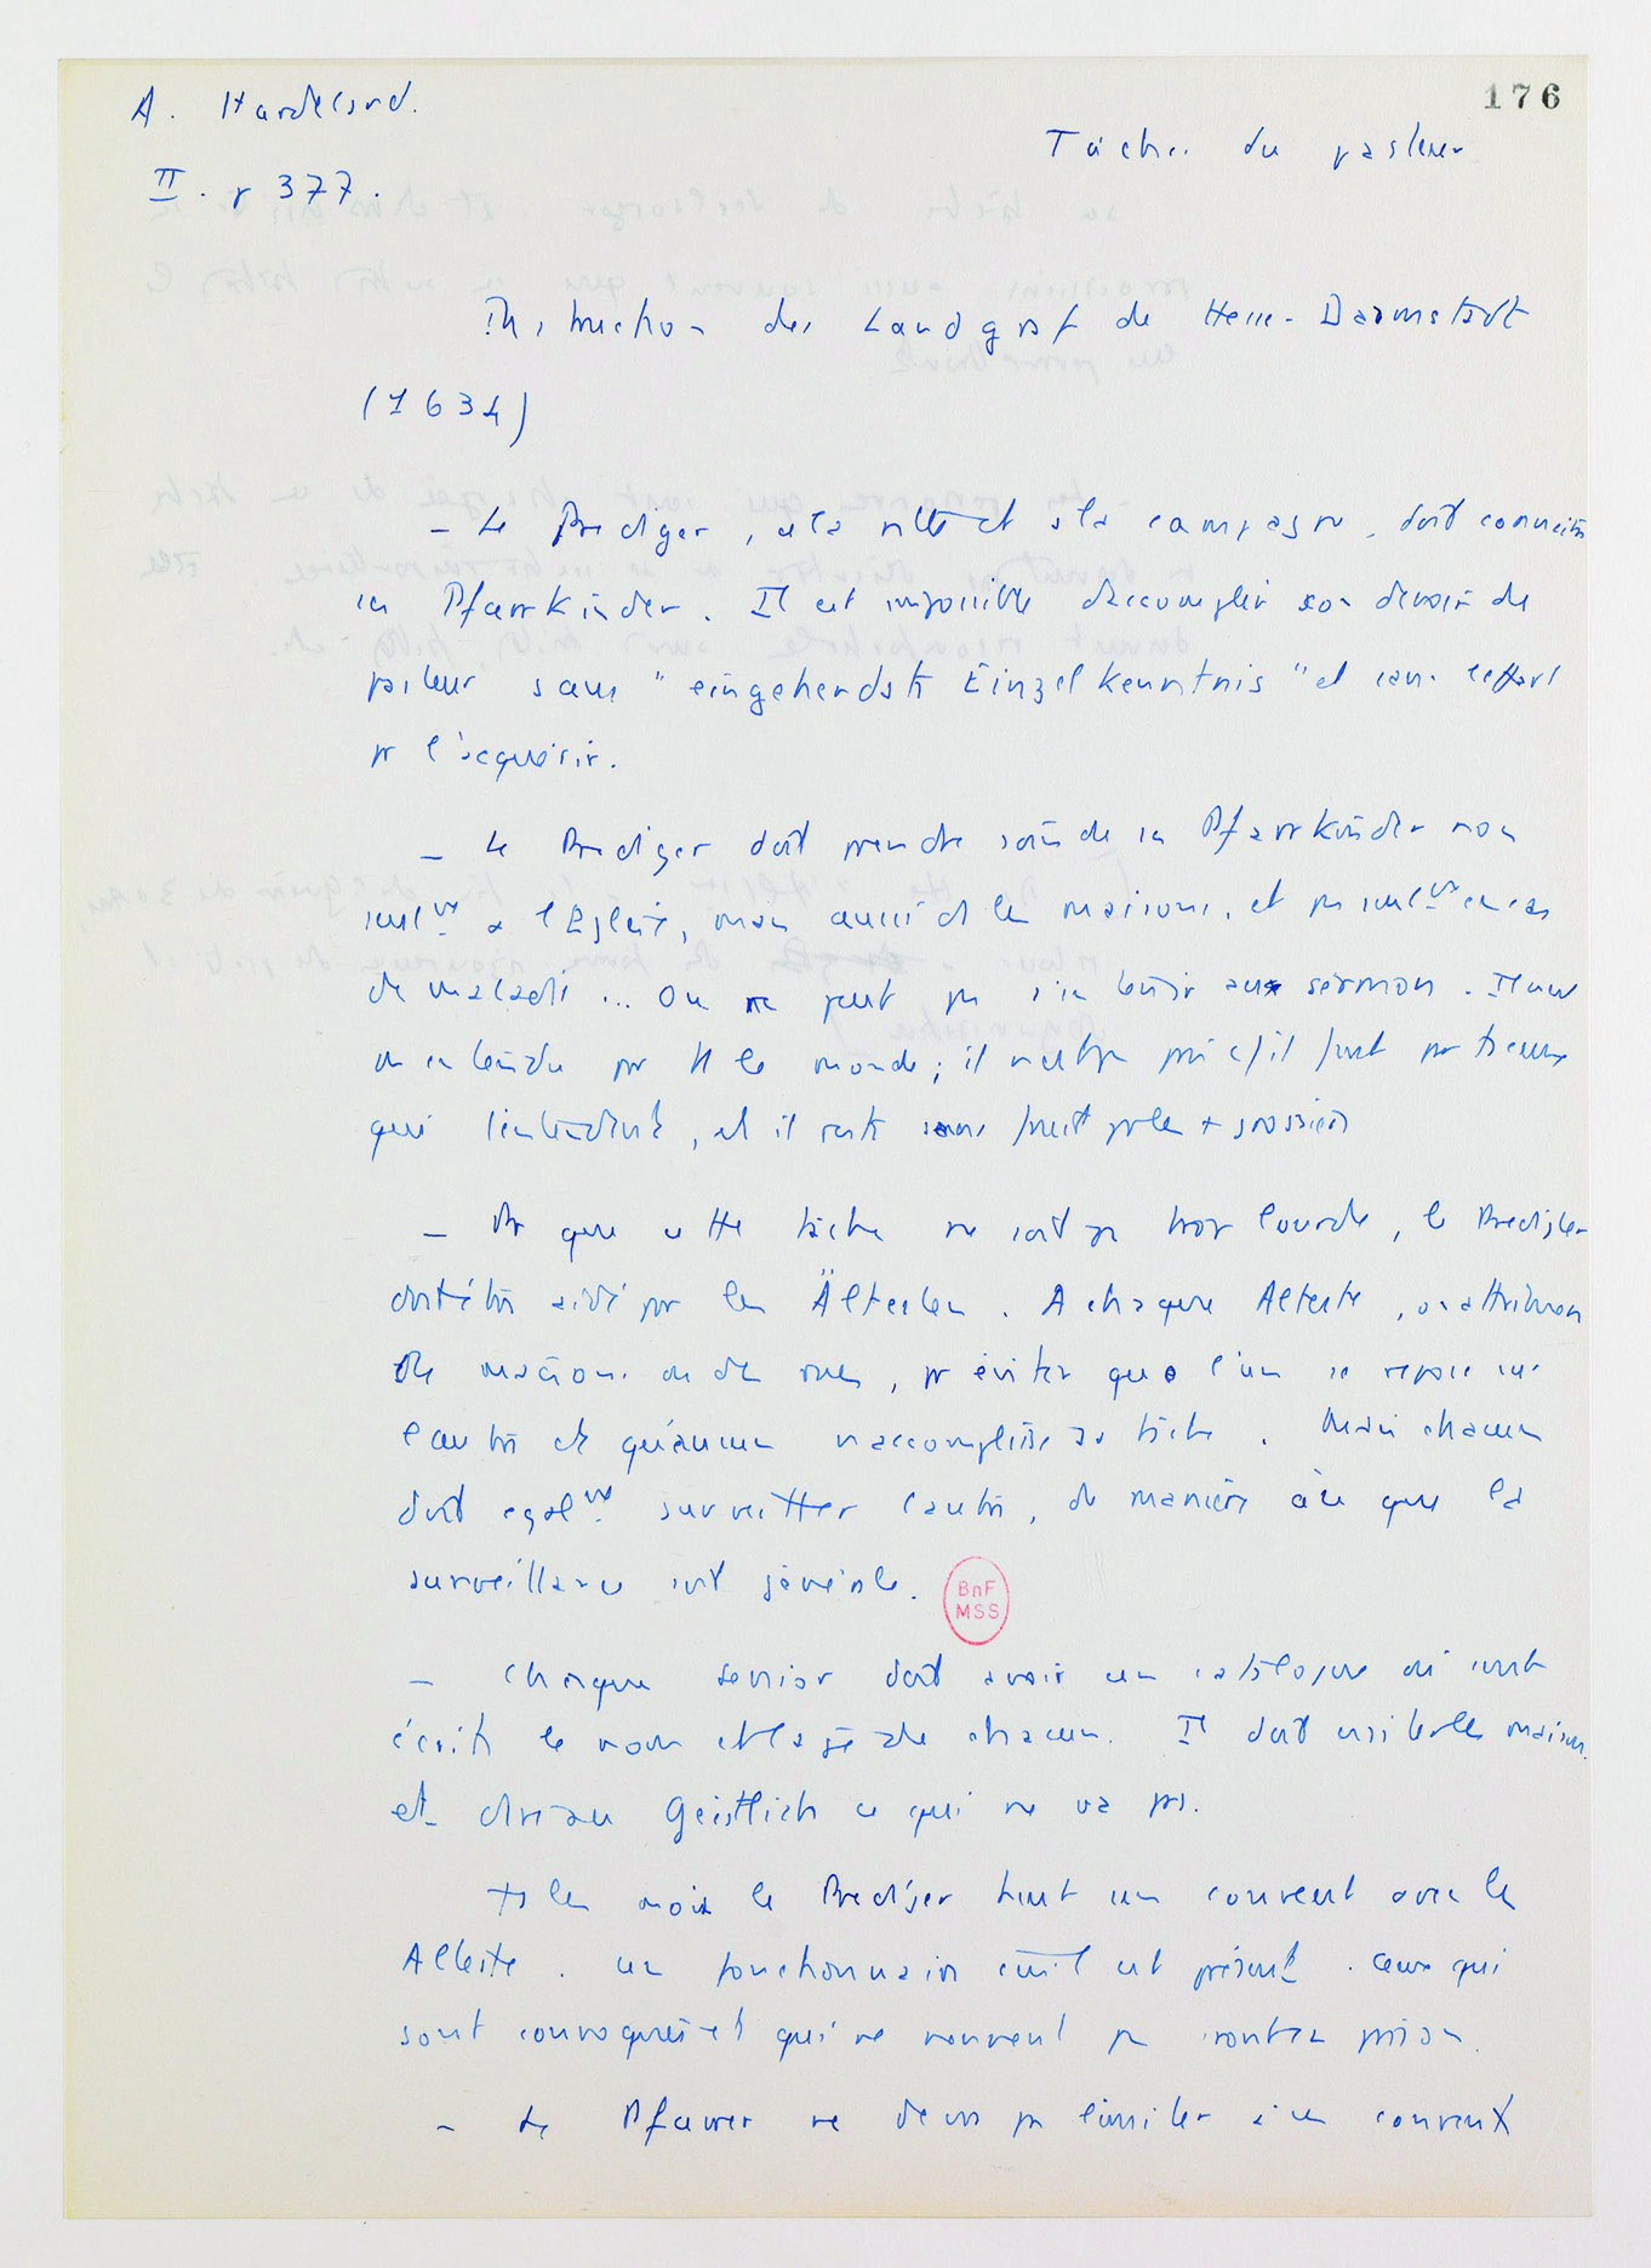 176
A. Hardeland.
Tâches du pasteur
II. p 377.
Instruction des Landgraf de Hesse-Darmstadt
(1634)
– Le Prediger, à la ville et à la campagne, doit connaître
ses Pfarrkinder. Il est impossible d'accomplir son devoir de
pasteur sans "eingehendste Einzelkenntnis" et sans l'effort
pr l'acquérir.
– Le Prediger doit prendre soin de ses Pfarrkinder non
seulmt à l'Eglise, mais aussi ds les maisons, et pas seulmt en cas
de maladie ... On ne peut pas s'en tenir aux sermons. Il
entendu par tt le monde; il
qui l'entendent, et il reste sans fruit pr les + grossiers
– Pr que cette tâche ne soit pas trop lourde, le Prediger
doit être aidé par les Ältesten. A chaque Alteste, on attribuera
des maisons ou des rues, pr éviter que l'un se repose sur
l'autre et qu'aucun n'accomplisse sa tâche. Mais chacun
doit egalmt surveiller l'autre, de manière à ce que la
surveillance soit générale.
BnF
MSS
– Chaque senior doit avoir un catalogue où sont
écrits le nom et l'âge de chacun. Il doit visiter les maisons
et dire au Geistlich ce qui ne va pas.
Ts les mois le Prediger tient un convent avec les
Alteste. Un fonctionnaire civil est présent. Ceux qui
sont convoqués et qui ne viennent pas iront en prison.
– Le Pfarrer ne devra pas se limiter à ces convents